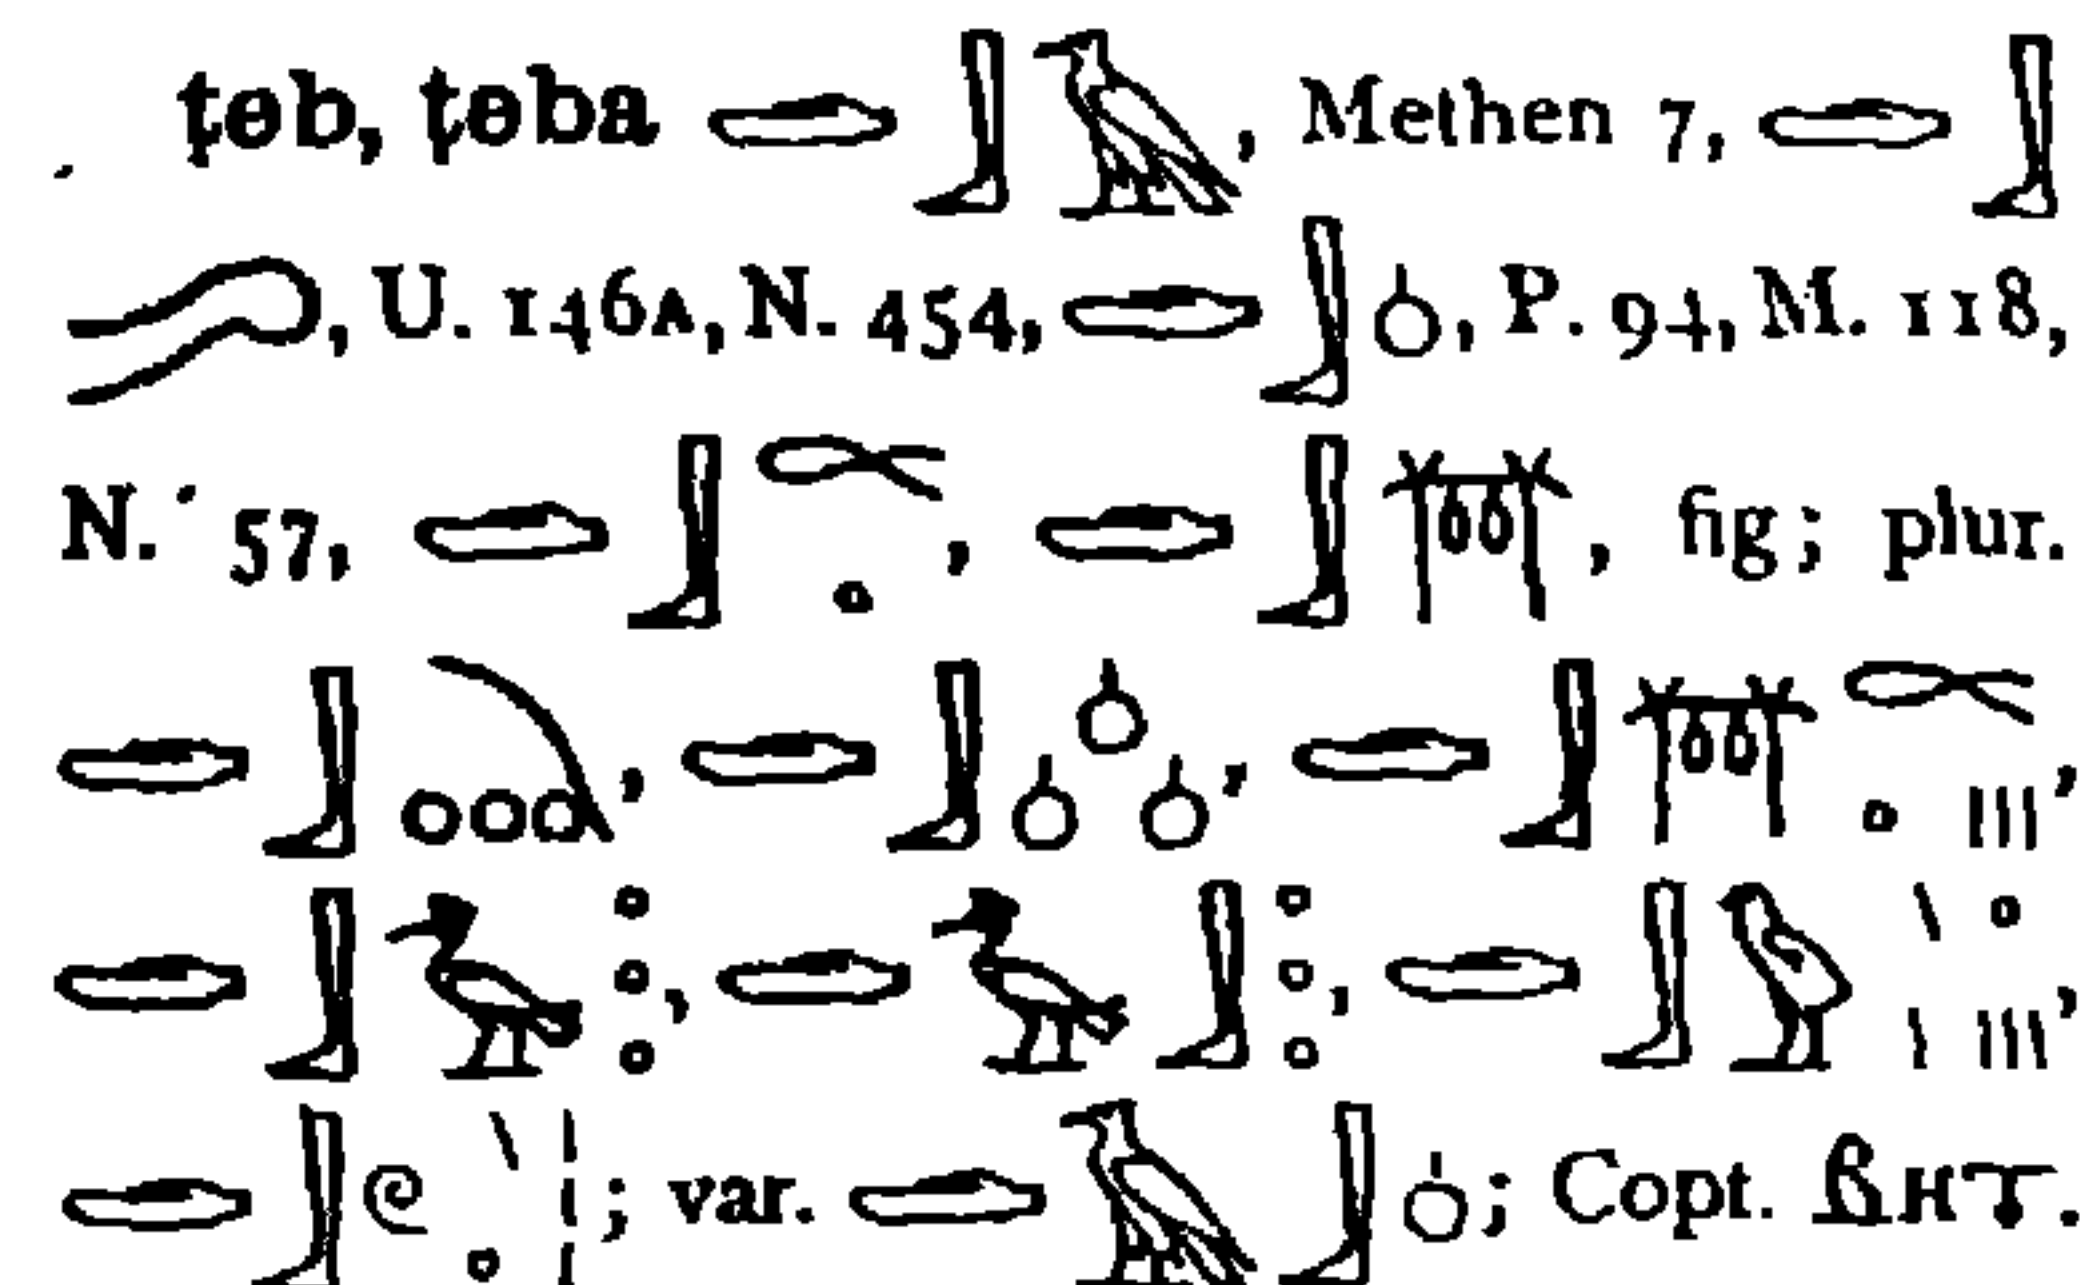 ṭeb, ṭeba 𓂧𓃀𓄿, Methen 7, 𓂧𓃀
, U. 146A, N. 454, 𓂧𓃀, P. 94, M. 118,
N. 57, 𓂧𓃀, 𓂧𓃀, fig; plur.
𓂧𓃀, 𓂧𓃀, 𓂧𓃀,
𓂧𓃀, 𓂧𓃀, 𓂧𓃀𓅱,
𓂧𓃀𓏲; var. 𓂧𓄿𓃀; Copt. ⲃⲏⲧ.